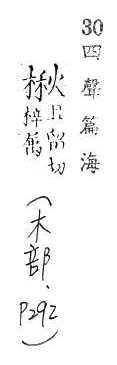 30四聲篇海
楸且留切
梓舊
(木部、P292)